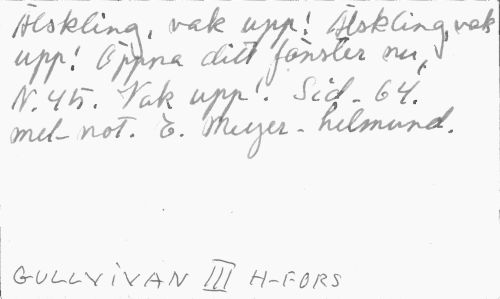 Älskling, vak upp! Älskling, vak
upp! Öppna ditt fönster nu,
N.45. Vak upp! Sid. 64.
mel-not. E. Meyer-helmund.
GULLVIVAN III H-FORS